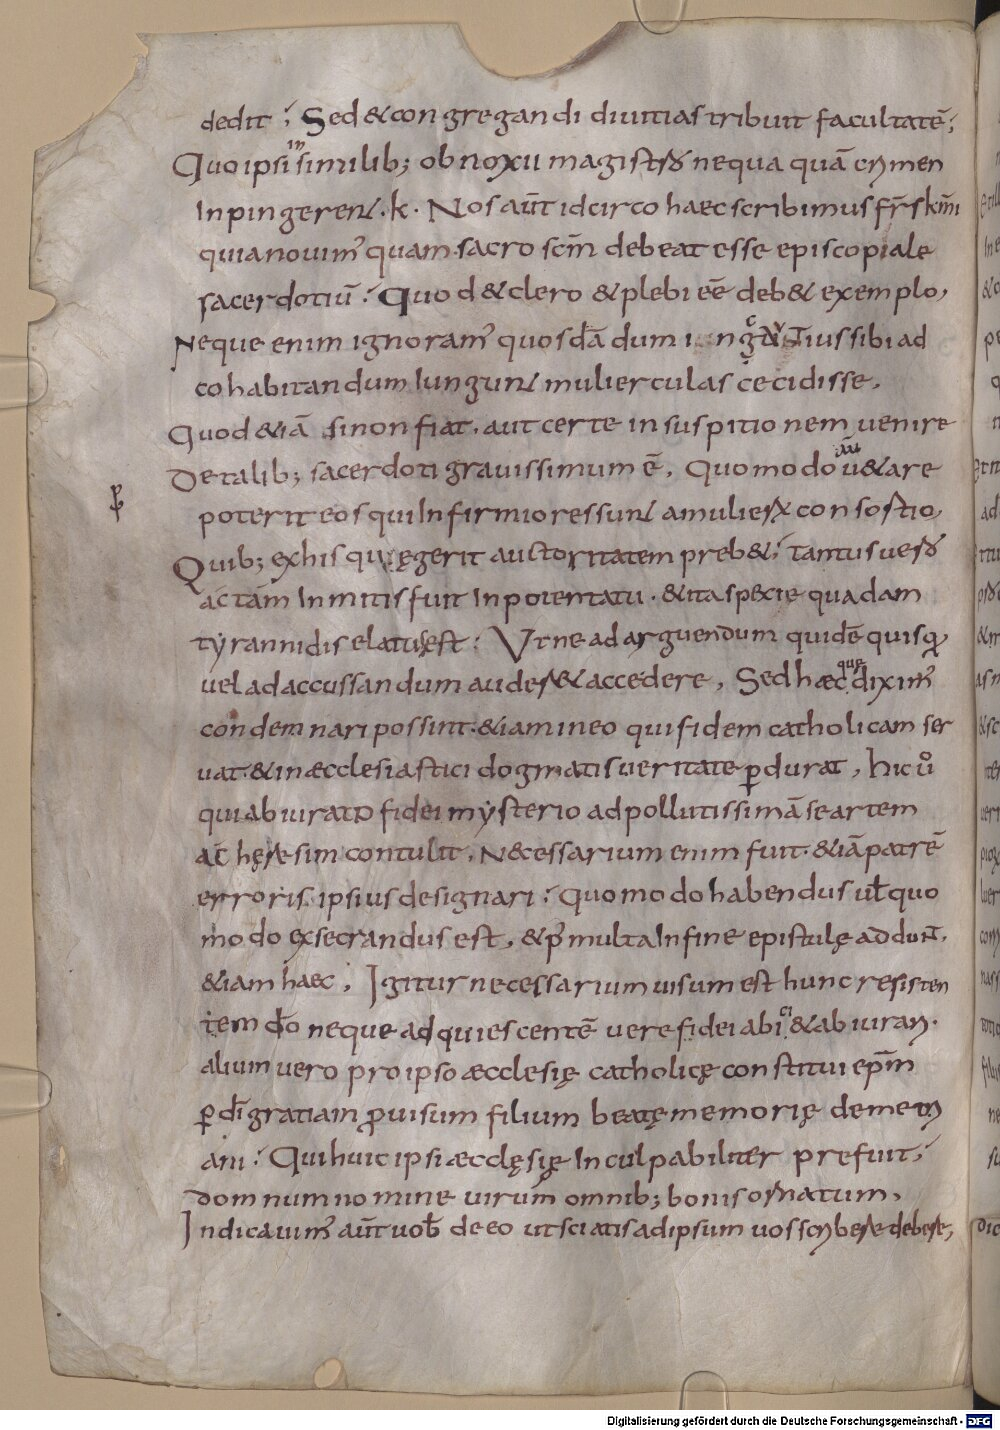 dedit; Sed & congregandi divitias tribuit facultatē;
Quo ipsi in similib; obnoxii magistro nequa quā crimen
inpingerent. k. Nos aūt idcirco haec scribimus frs kmi
quia novim' quam sacro scm debeat esse episcopale
sacerdotiū; Quod & clero & plebi eē deb& exemplo,
Neque enim ignoram' quosdā dum
cohabitandum iungunt mulierculas cecidisse,
Quod &iā si non fiat, aut certe in suspitionem venire
De talib; sacerdoti gravissimum ē, Quomodo aūt u&are
poterit eos qui infirmiores sunt a mulierum consostio,
Quib; ex his quę egerit auctoritatem preb&; tantus vero
ac tam inmitis fuit in potentatu. & ita specie quadam
tyrannidis elatus est; Ut ne ad arguendum quidē quisq,
vel ad accussandum auder& accedere, Sed haec que dixim'
condemnari possint. &iam in eo qui fidem catholicam ser
vat. & in æcclesiastici dogmatis veritate pdurat, hic uo
qui abiurato fidei mysterio ad pollutissimā se artem
ac hęresim contulit, Necessarium enim fuit &iā patrē
erroris ipsius designari; Quomodo habendus ul quo
modo exsecrandus est, & p' multa in fine epistulę addun̄.
&iam haec, Igitur necessarium visum est hunc resisten
tem do neque adquiescentē vere fidei abici & abiuran.
alium vero pro ipso æcclesię catholicę constitui epm
p di gratiam pvisum filium beatę memorię demetri
ani; Qui huic ipsi æcclęsię inculpabiliter prefuit;
domnum nomine virum omnib; bonis ornatum,
Indicavim' aūt vob de eo ut sciatis ad ipsum vos scribere debere;
Digitalisierung gefördert durch die Deutsche Forschungsgemeinschaft - DFG